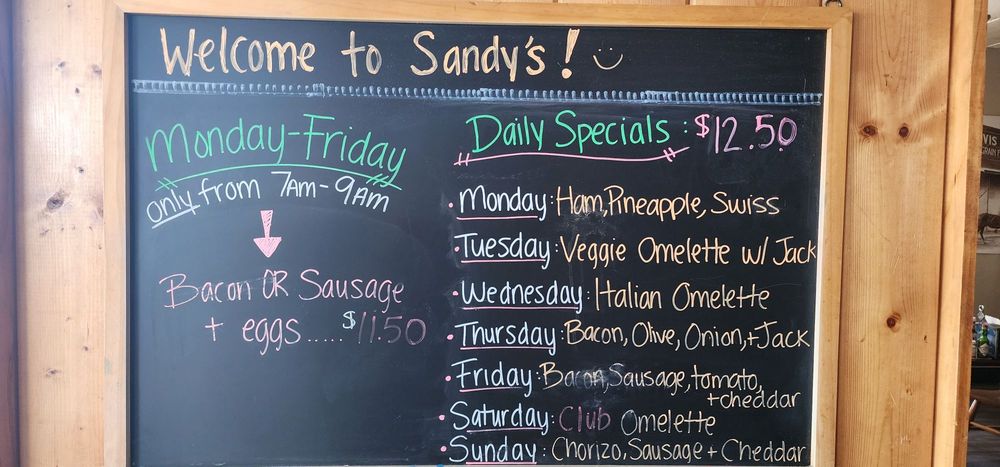 Welcome to Sandy's! :)
Monday-Friday
only from 7AM-9AM
Bacon OR Sausage
+ eggs..... $11.50
Daily Specials: $12.50
• Monday: Ham, Pineapple, Swiss
• Tuesday: Veggie Omelette w/ Jack
• Wednesday: Italian Omelette
• Thursday: Bacon, Olive, Onion, + Jack
• Friday: Bacon, Sausage, tomato,
+ cheddar
• Saturday: Club Omelette
• Sunday: Chorizo, Sausage + Cheddar